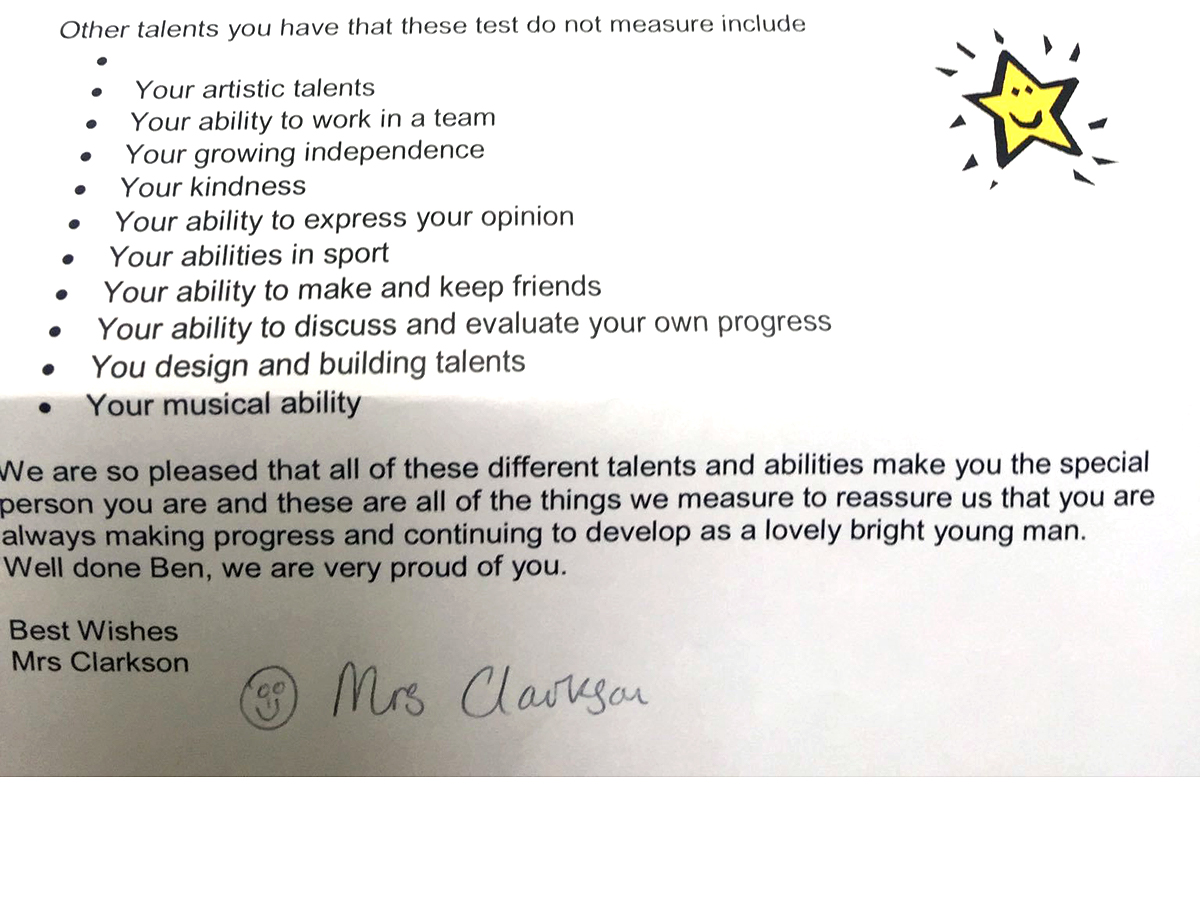 Other talents you have that these test do not measure include
•
• Your artistic talents
• Your ability to work in a team
• Your growing independence
• Your kindness
• Your ability to express your opinion
• Your abilities in sport
• Your ability to make and keep friends
• Your ability to discuss and evaluate your own progress
• You design and building talents
• Your musical ability
We are so pleased that all of these different talents and abilities make you the special
person you are and these are all of the things we measure to reassure us that you are
always making progress and continuing to develop as a lovely bright young man.
Well done Ben, we are very proud of you.
Best Wishes
Mrs Clarkson
Mrs Clarkson